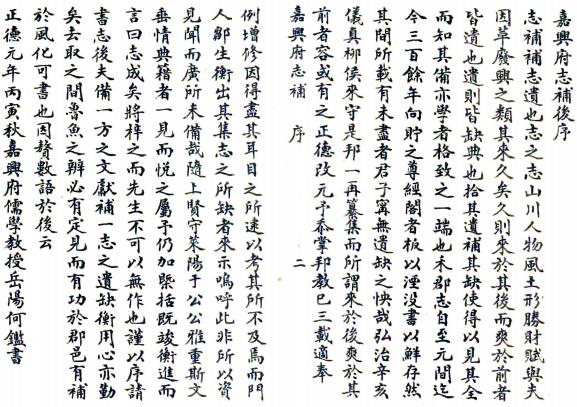 嘉興府志補後序
志補補志遺也志之志山川人物風土形勝財賦與夫
因革廢興之類其來久矣久則來於其後而爽於前者
皆遺也遺則皆缺典也拾其遺補其缺使得以見其全
而知其備亦學者格致之一端也禾郡志自至元間迄
今三百餘年向貯之尊經閣者板以湮没書以鮮存然
其間所載有未盡者君子寗無遺缺之怏哉弘治辛亥
儀真柳侯來守是邦一再纂集而所謂來於後爽於其
前者容或有之正德改元予忝掌邦教已三載適奉
嘉興府志補 序 二
例增修因得盡其耳目之所逮以考其所不及焉而門
人鄒生衡出其集志之所缺者來示嗚呼此非所以資
見聞而廣所未備哉隨上賢守萊陽于公公雅重斯文
垂情典籍者一見而悦之屬予仍加檃括既竣衡進而
言曰志成矣將梓之而先生不可以無作也謹以序請
書志後夫備一方之文獻補一志之遺缺衡用心亦勤
矣去取之間魯魚之辨必有定見而有功於郡邑有補
於風化可書也因贅數語於後云
正德元年丙寅秋嘉興府儒學教授岳陽何鑑書